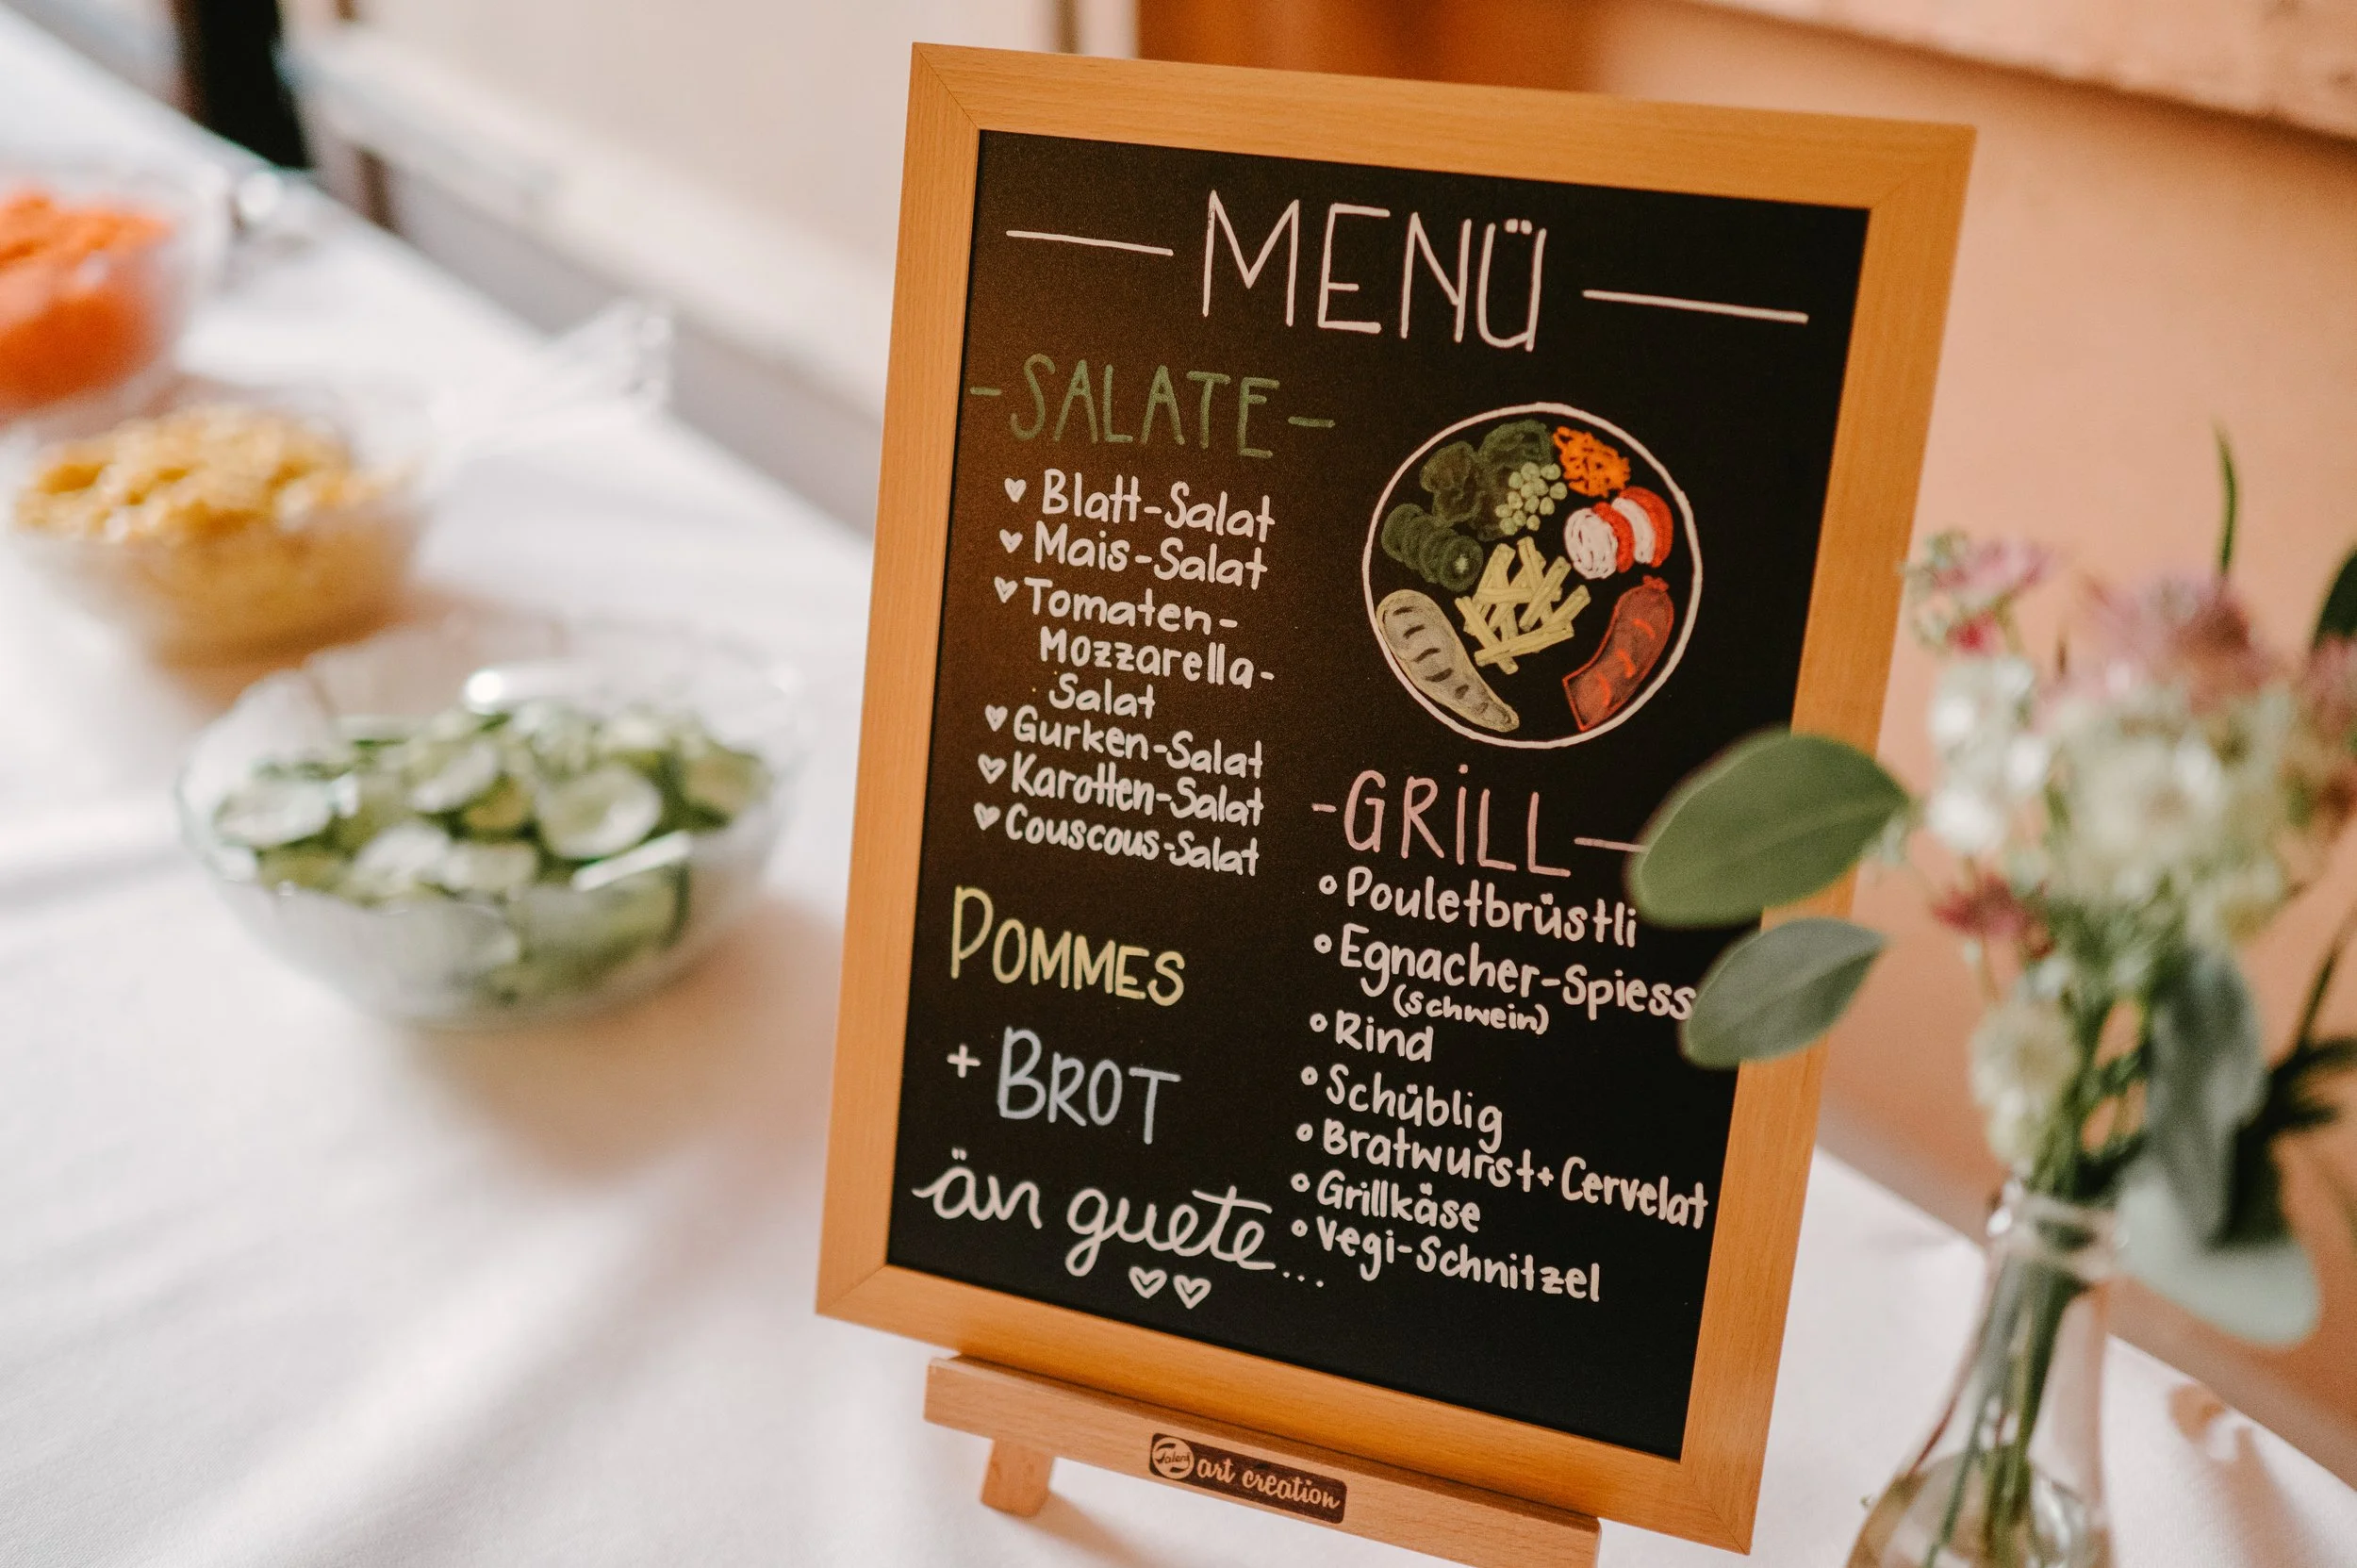 MENÜ
-SALATE-
Blatt-Salat
Mais-Salat
Tomaten-
Mozzarella-
Salat
Gurken-Salat
Karotten-Salat
Couscous-Salat
POMMES
+ BROT
än guete...
-GRiLL-
Pouletbrüstli
Egnacher-Spiess
(schwein)
Rind
Schüblig
Bratwurst + Cervelat
Grillkäse
Vegi-Schnitzel
Talens art creation